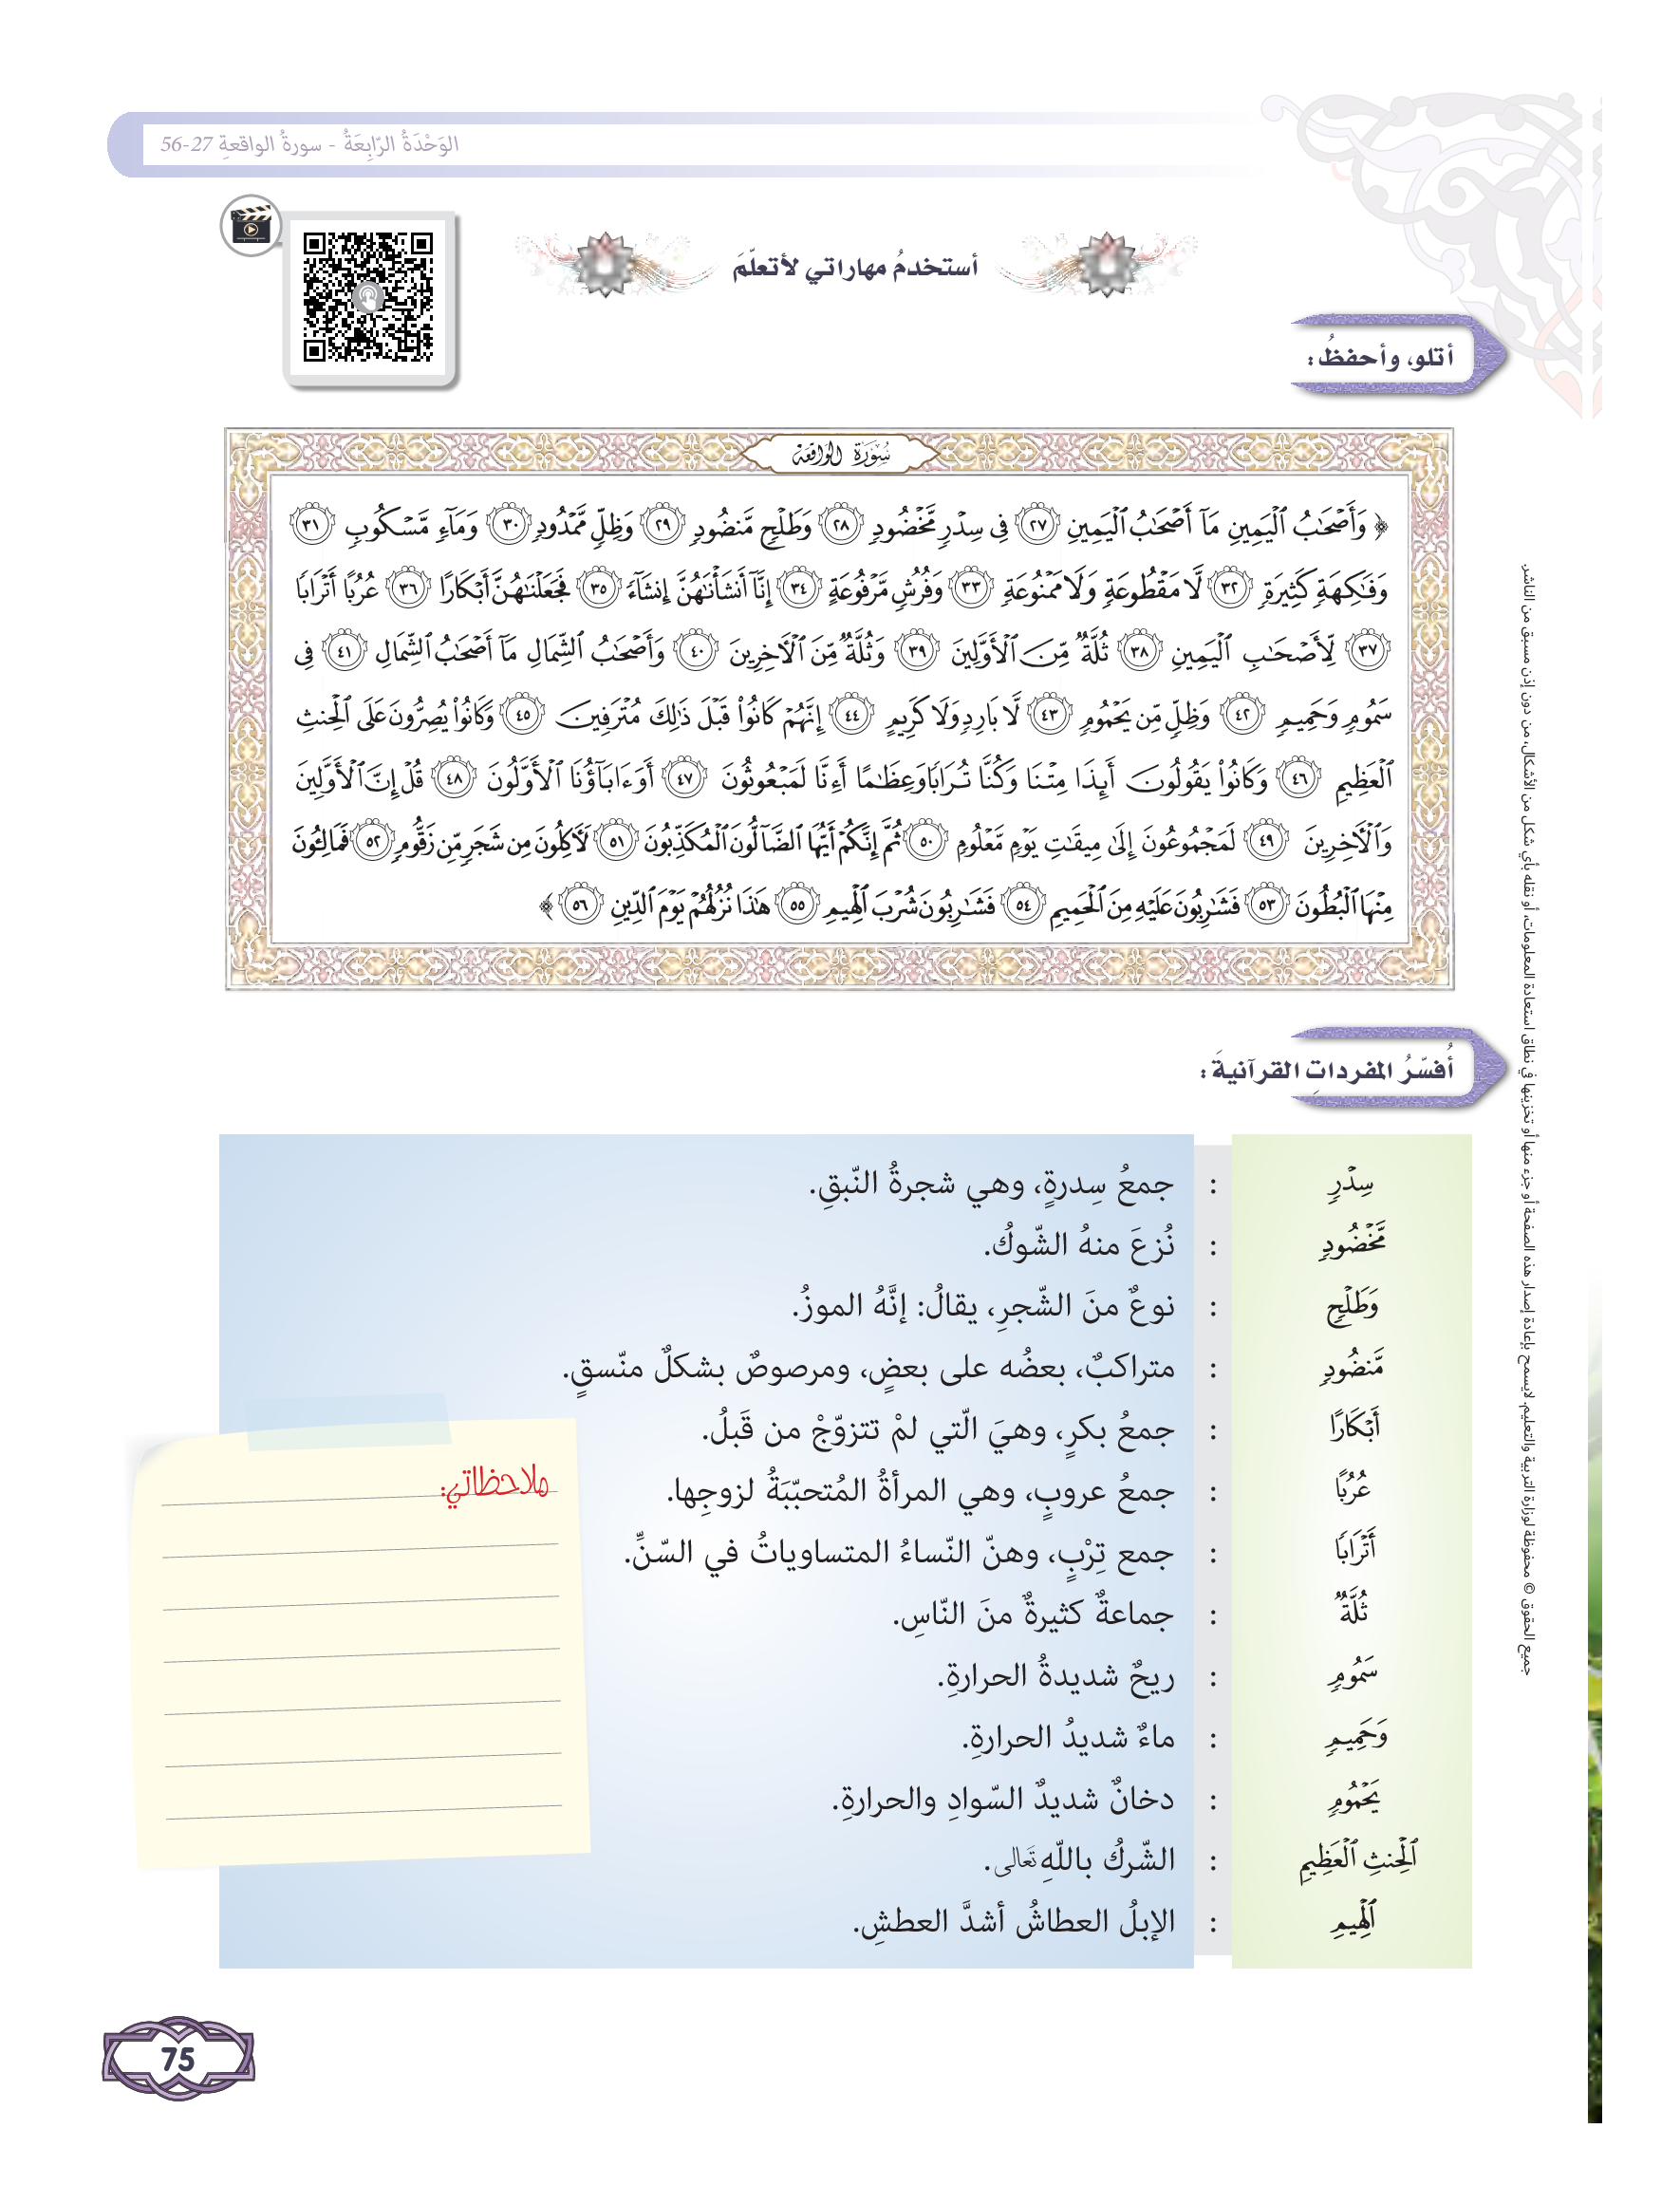 الوَحْدَةُ الرّابِعَةُ - سورةُ الواقعةِ 27-56
أستخدمُ مهاراتي لأتعلّمَ
أتلو، وأحفظُ:
سُورَةُ الوَاقِعَةِ
﴿ وَأَصْحَٰبُ ٱلْيَمِينِ مَآ أَصْحَٰبُ ٱلْيَمِينِ ٢٧ فِى سِدْرٍ مَّخْضُودٍ ٢٨ وَطَلْحٍ مَّنضُودٍ ٢٩ وَظِلٍّ مَّمْدُودٍ ٣٠ وَمَآءٍ مَّسْكُوبٍ ٣١
وَفَٰكِهَةٍ كَثِيرَةٍ ٣٢ لَّا مَقْطُوعَةٍ وَلَا مَمْنُوعَةٍ ٣٣ وَفُرُشٍ مَّرْفُوعَةٍ ٣٤ إِنَّآ أَنشَأْنَٰهُنَّ إِنشَآءً ٣٥ فَجَعَلْنَٰهُنَّ أَبْكَارًا ٣٦ عُرُبًا أَتْرَابًا
٣٧ لِّأَصْحَٰبِ ٱلْيَمِينِ ٣٨ ثُلَّةٌ مِّنَ ٱلْأَوَّلِينَ ٣٩ وَثُلَّةٌ مِّنَ ٱلْءَاخِرِينَ ٤٠ وَأَصْحَٰبُ ٱلشِّمَالِ مَآ أَصْحَٰبُ ٱلشِّمَالِ ٤١ فِى
سَمُومٍ وَحَمِيمٍ ٤٢ وَظِلٍّ مِّن يَحْمُومٍ ٤٣ لَّا بَارِدٍ وَلَا كَرِيمٍ ٤٤ إِنَّهُمْ كَانُوا۟ قَبْلَ ذَٰلِكَ مُتْرَفِينَ ٤٥ وَكَانُوا۟ يُصِرُّونَ عَلَى ٱلْحِنثِ
ٱلْعَظِيمِ ٤٦ وَكَانُوا۟ يَقُولُونَ أَئِذَا مِتْنَا وَكُنَّا تُرَابًا وَعِظَٰمًا أَءِنَّا لَمَبْعُوثُونَ ٤٧ أَوَءَابَآؤُنَا ٱلْأَوَّلُونَ ٤٨ قُلْ إِنَّ ٱلْأَوَّلِينَ
وَٱلْءَاخِرِينَ ٤٩ لَمَجْمُوعُونَ إِلَىٰ مِيقَٰتِ يَوْمٍ مَّعْلُومٍ ٥٠ ثُمَّ إِنَّكُمْ أَيُّهَا ٱلضَّآلُّونَ ٱلْمُكَذِّبُونَ ٥١ لَءَاكِلُونَ مِن شَجَرٍ مِّن زَقُّومٍ ٥٢ فَمَالِـُٔونَ
مِنْهَا ٱلْبُطُونَ ٥٣ فَشَٰرِبُونَ عَلَيْهِ مِنَ ٱلْحَمِيمِ ٥٤ فَشَٰرِبُونَ شُرْبَ ٱلْهِيمِ ٥٥ هَٰذَا نُزُلُهُمْ يَوْمَ ٱلدِّينِ ٥٦ ﴾
أُفسّرُ المفرداتِ القرآنيةَ:
سِدْرٍ : جمعُ سِدرةٍ، وهي شجرةُ النّبقِ.
مَّخْضُودٍ : نُزعَ منهُ الشّوكُ.
وَطَلْحٍ : نوعٌ منَ الشّجرِ، يقالُ: إنَّهُ الموزُ.
مَّنضُودٍ : متراكبٌ، بعضُه على بعضٍ، ومرصوصٌ بشكلٌ منّسقٍ.
أَبْكَارًا : جمعُ بكرٍ، وهيَ الّتي لمْ تتزوّجْ من قَبلُ.
عُرُبًا : جمعُ عروبٍ، وهي المرأةُ المُتحبّبَةُ لزوجِها.
أَتْرَابًا : جمع تِرْبٍ، وهنّ النّساءُ المتساوياتُ في السّنِّ.
ثُلَّةٌ : جماعةٌ كثيرةٌ منَ النّاسِ.
سَمُومٍ : ريحٌ شديدةُ الحرارةِ.
وَحَمِيمٍ : ماءٌ شديدُ الحرارةِ.
يَحْمُومٍ : دخانٌ شديدٌ السّوادِ والحرارةِ.
ٱلْحِنثِ ٱلْعَظِيمِ : الشّركُ باللّهِ تَعَالى.
ٱلْهِيمِ : الإبلُ العطاشُ أشدَّ العطشِ.
ملاحظاتي:
جميع الحقوق © محفوظة لوزارة التربية والتعليم. لايسمح بإعادة إصدار هذه الصفحة أو جزء منها أو تخزينها في نطاق استعادة المعلومات، أو نقله بأي شكل من الأشكال، من دون إذن مسبق من الناشر
75